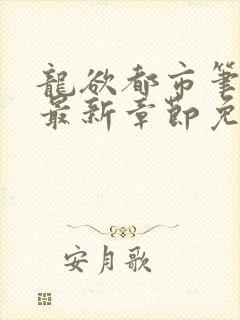 龍欲都市筆
最新章節免
安月歌